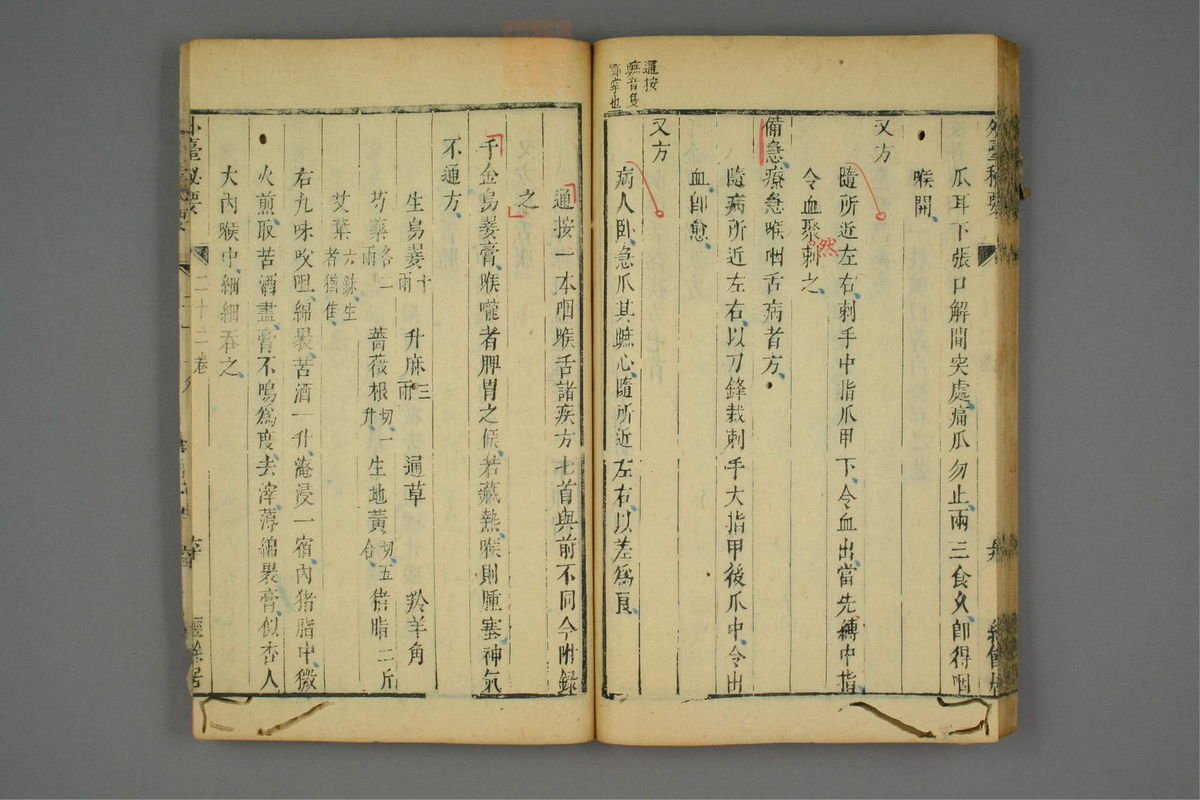 通按
音隻
外臺秘要
瓜耳下張口解間突處痛瓜勿止兩三食久卽得咽
喉開
又方
隨所近左右刺手中指爪甲下令血出當先縛中指
令血聚刺之
然
備急療急喉咽舌病者方
隨病所近左右以刀鋒裁刺手大指甲後爪中令出
血卽愈
又方
病人臥急爪其蹠心隨所近左右以差爲良
通按一本咽喉舌諸疾方七首與前不同今附錄
之
千金烏萎膏喉嚨者脾胃之候若藏熱喉則腫塞神氣
不通方
生烏萎十兩 升麻三兩 通草 羚羊角
芍藥各二兩 薔薇根切一升 生地黃切五合 猪脂二斤
艾葉六銖生者猶佳
右九味㕮咀綿裹苦酒一升淹浸一宿內猪脂中微
火煎取苦酒盡膏不鳴爲度去滓薄綿裹膏似杏人
大內喉中細細吞之
外臺秘要
二十二卷
經餘居